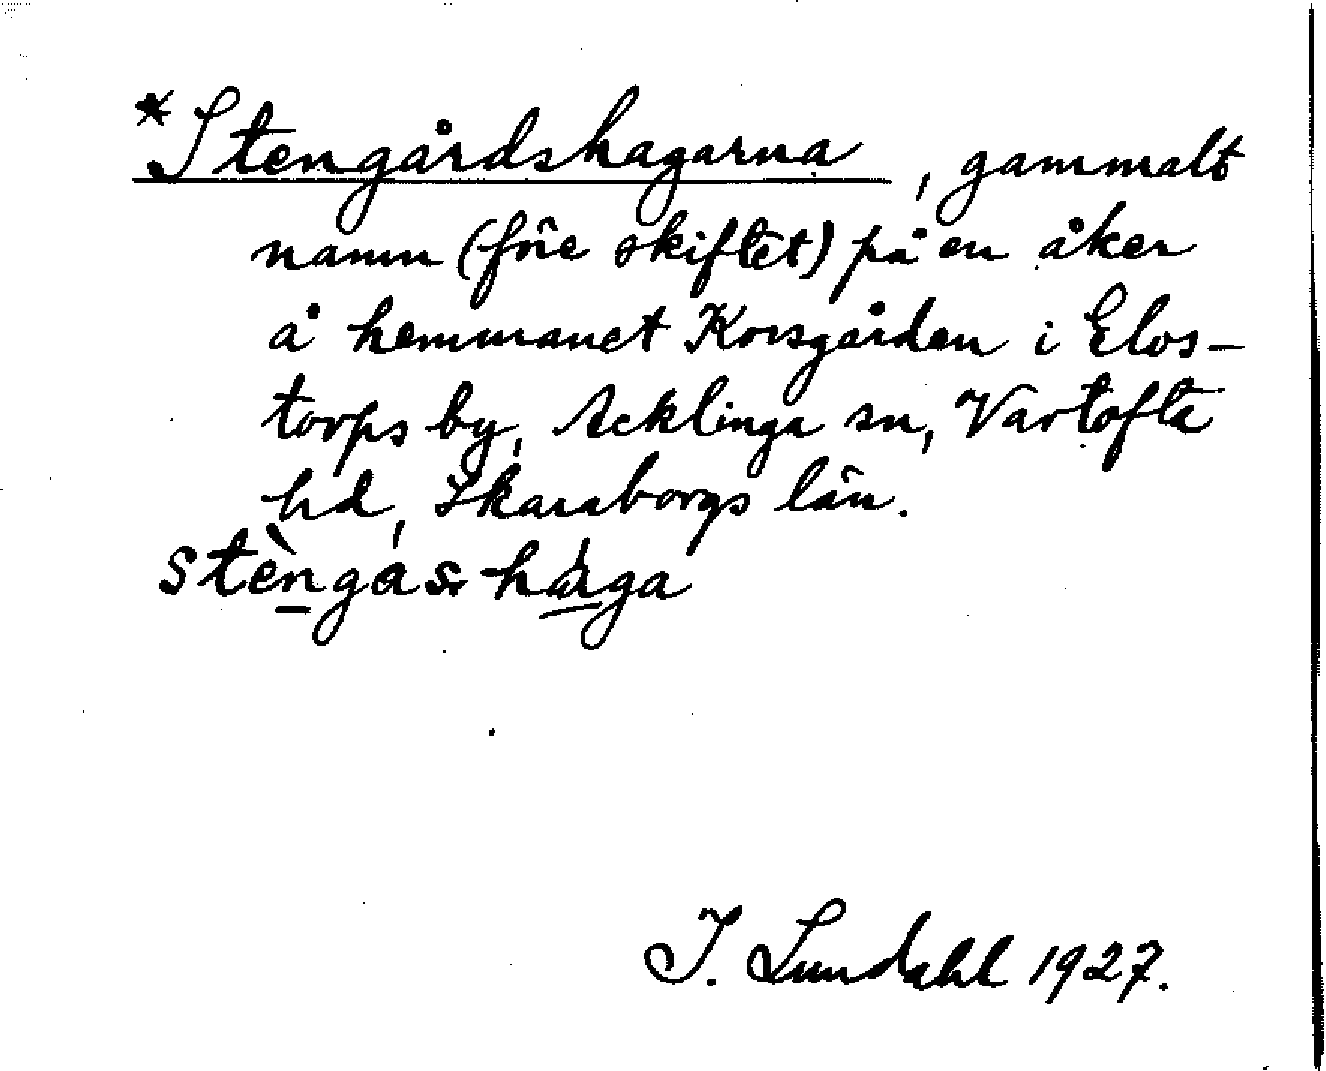 *Stengårdshagarna, gammalt
namn (före skiftet) på en åker
å hemmanet Korsgården i Elos-
torps by, Acklinga sn, Vartofta
hd, Skaraborgs län.
stèngas-hága
I. Lundahl 1927.